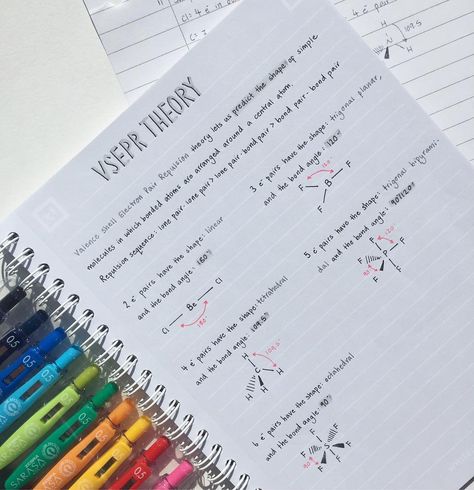 VSEPR THEORY
Valence Shell Electron Pair Repulsion theory lets us predict the shape of simple
molecules in which bonded atoms are arranged around a central atom.
Repulsion sequence: lone pair-lone pair > lone pair-bond pair > bond pair-bond pair
2 e⁻ pairs have the shape: linear
and the bond angle: 180°
Cl Be Cl
180°
3 e⁻ pairs have the shape: trigonal planar,
and the bond angle: 120°
120°
F B F
F
4 e⁻ pairs have the shape: tetrahedral
and the bond angle: 109.5°
H 109.5
C
H H H
5 e⁻ pairs have the shape: trigonal bipyrami-
dal and the bond angle: 90/120°
F 120° F
F P
90° F F
6 e⁻ pairs have the shape: octahedral
and the bond angle: 90°
F F F
S
90° F F F
109.5
N
H
0.5
0.5
0.5
0.5
0.5
SARASA